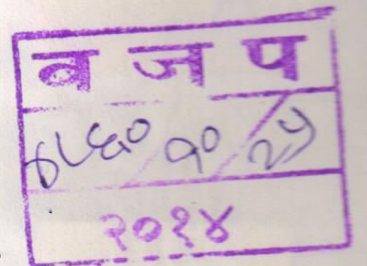 ब ज प
४८६०/१०/२५
२०१४